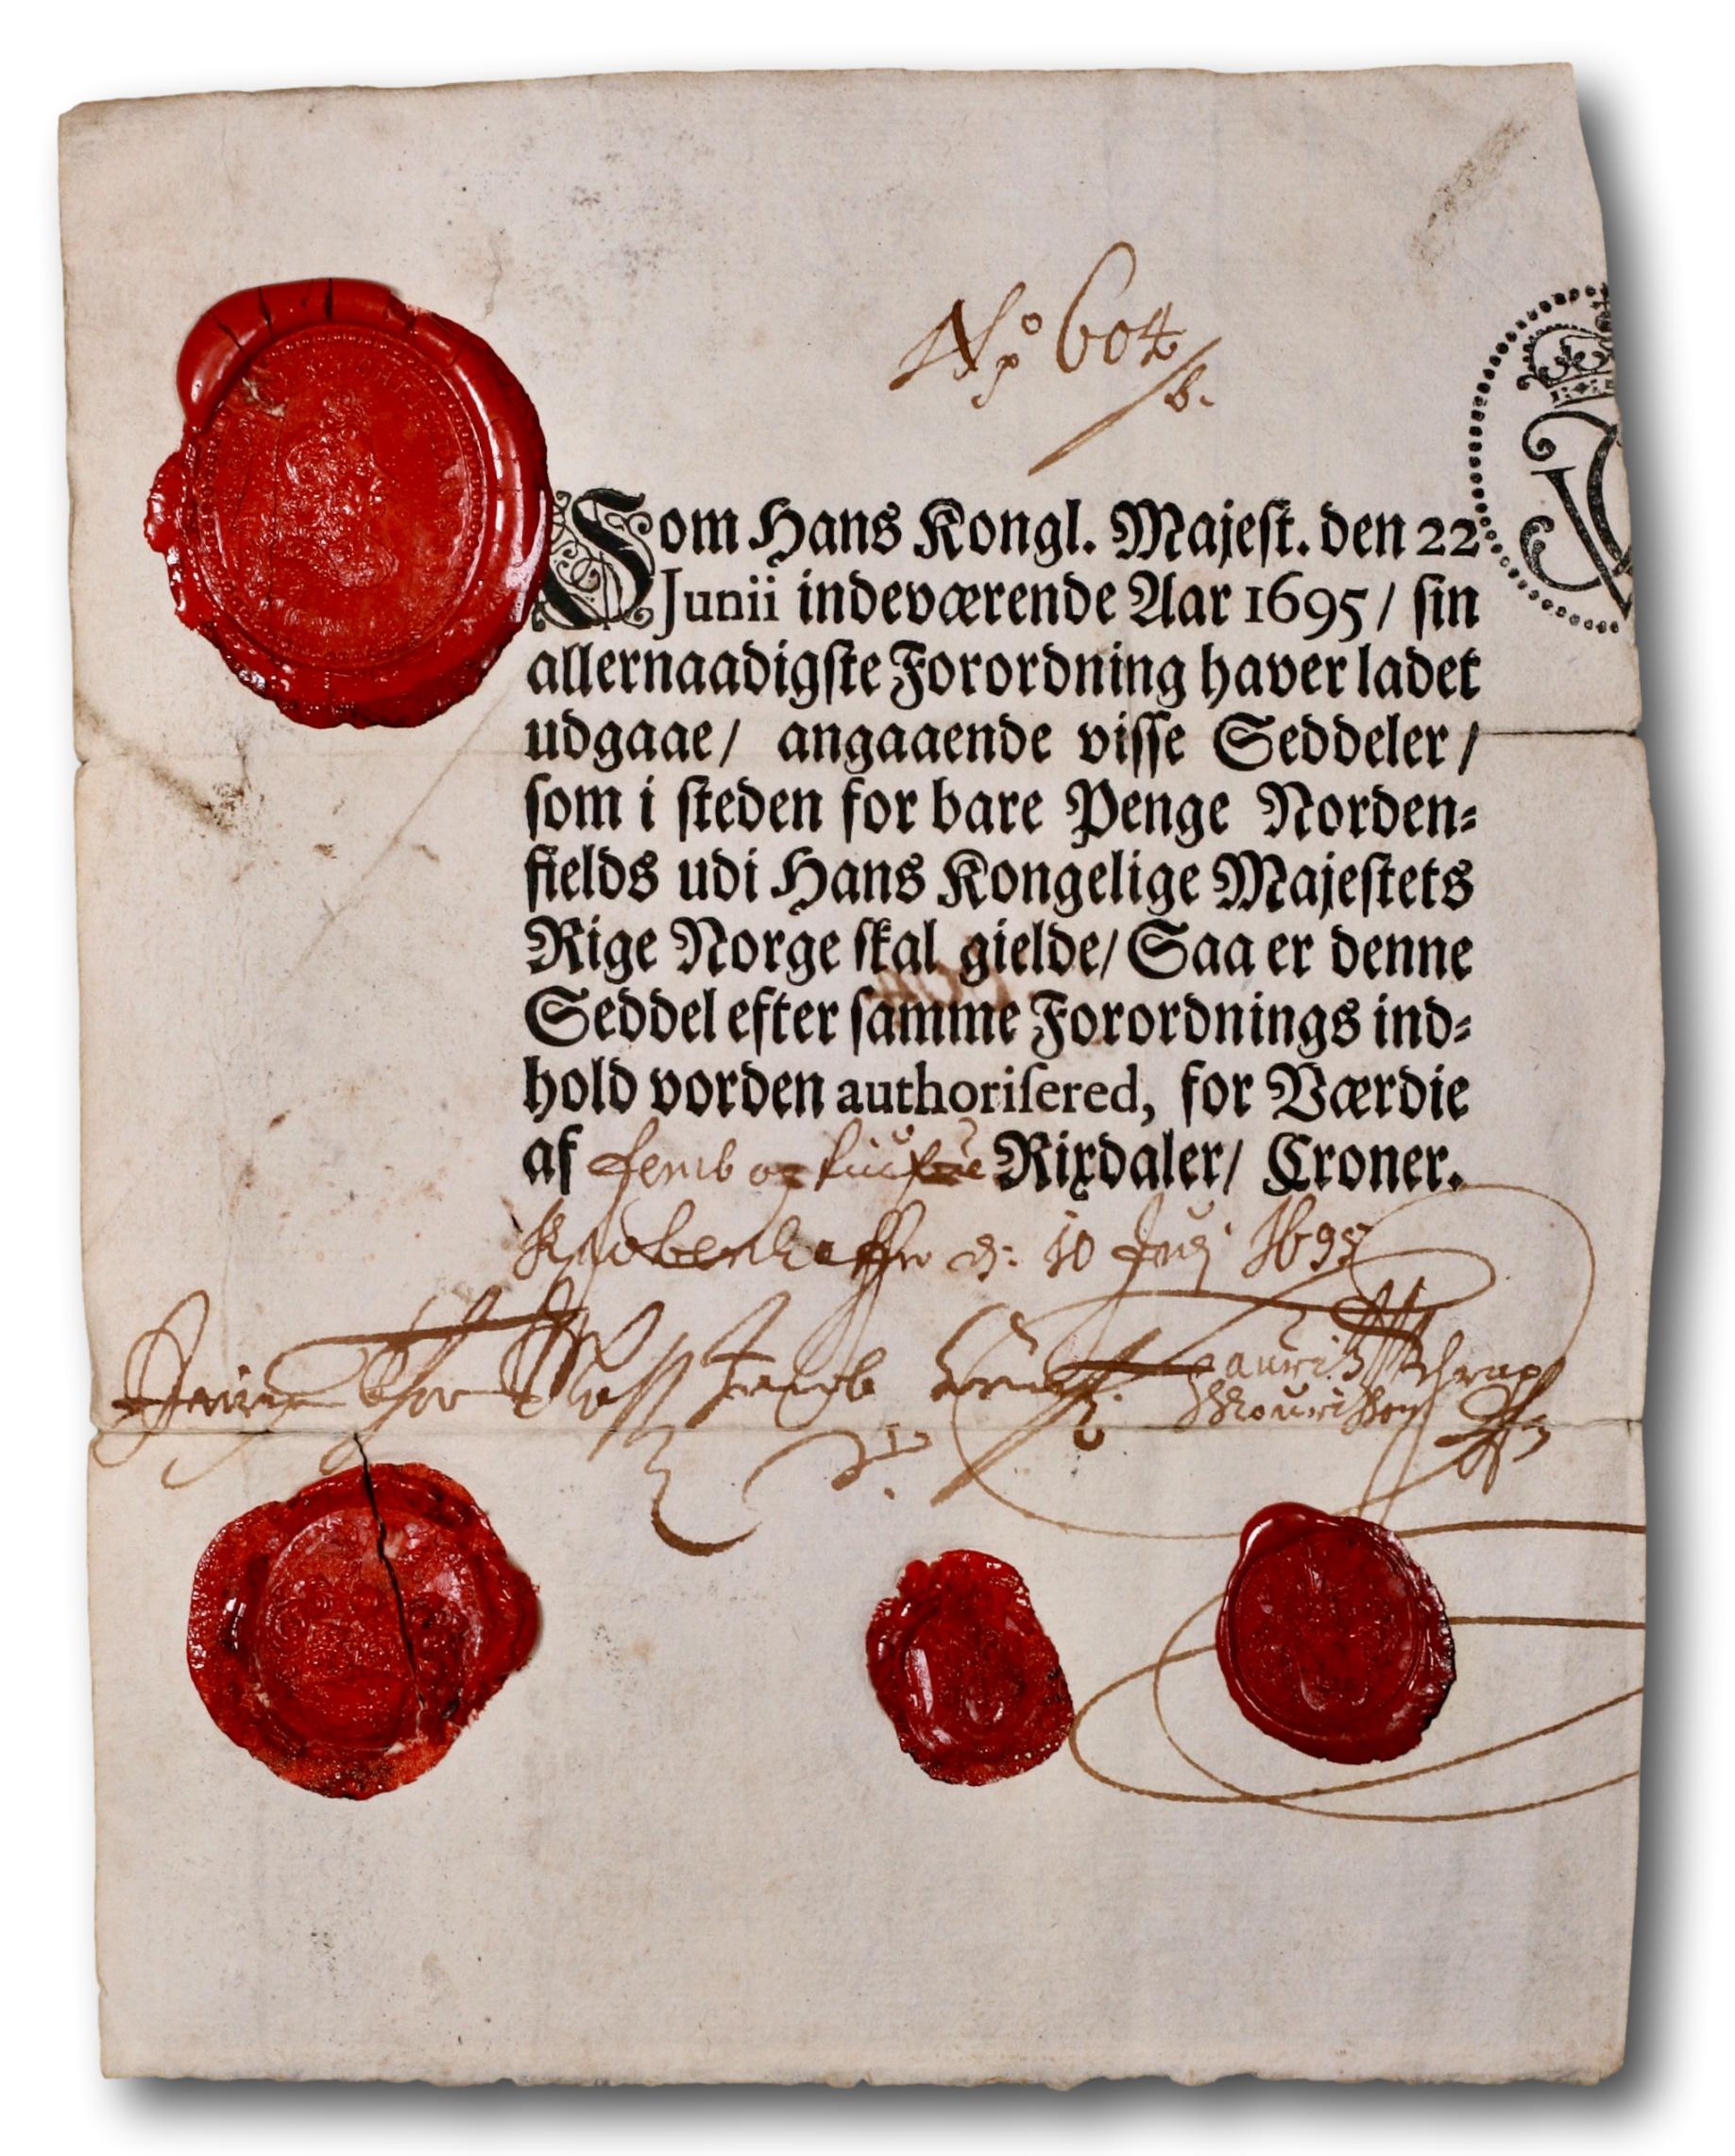 No 604
b.
Som Hans Kongl. Majeſt. den 22
Junii indeværende Aar 1695/ ſin
allernaadigſte Forordning haver ladet
udgaae/ angaaende viſſe Seddeler/
ſom i ſteden for bare Penge Norden⸗
fields udi Hans Kongelige Majeſtets
Rige Norge ſkal gielde/ Saa er denne
Seddel efter ſamme Forordnings ind⸗
hold vorden authoriſered, for Værdie
af femb og tiufue Rixdaler/ Croner.
Kiøbenhaffn d: 10 Julj 1695